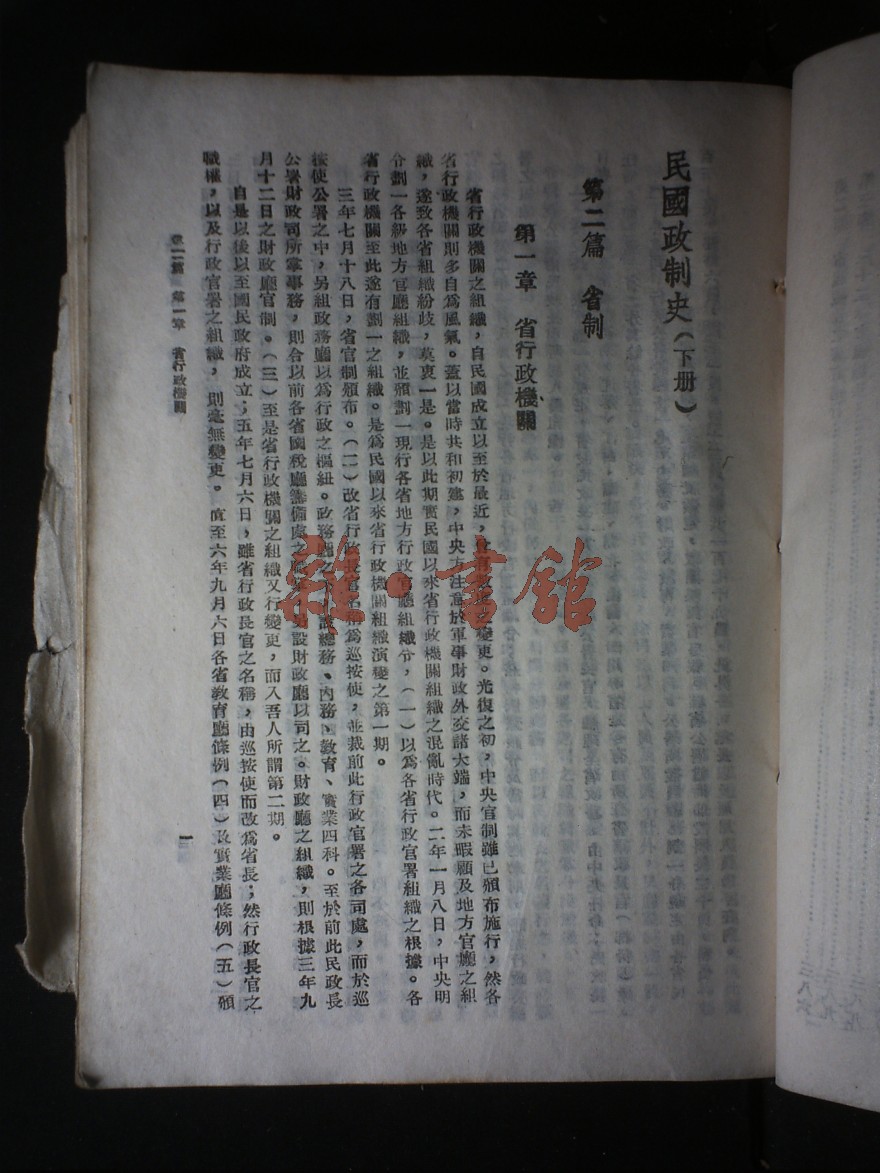 民國政制史(下册)
第二篇 省制
第一章 省行政機關
省行政機關之組織，自民國成立以至於最近，變更。光復之初，中央官制雖已頒布施行，然各
省行政機關則多自為風氣。蓋以當時共和初建，中央方注意於軍事財政外交諸大端，而未暇顧及地方官廳之組
織，遂致各省組織紛歧，莫衷一是。是以此期實民國以來省行政機關組織之混亂時代。二年一月八日，中央明
令劃一各級地方官廳組織，並頒劃一現行各省地方行政官廳組織令，(一)以為各省行政官署組織之根據。各
省行政機關至此遂有劃一之組織。是為民國以來省行政機關組織演變之第一期。
三年七月十八日，省官制頒布。(二)改省行政長官名稱為巡按使，並裁前此行政官署之各司處，而於巡
按使公署之中，另組政務廳以為行政之樞紐。政務廳之總務、內務、教育、實業四科。至於前此民政長
公署財政司所掌事務，則合以前各省國稅廳籌備處之設財政廳以司之。財政廳之組織，則根據三年九
月十二日之財政廳官制。(三)至是省行政機關之組織又行變更，而入吾人所謂第二期。
自是以後以至國民政府成立；五年七月六日，雖省行政長官之名稱，由巡按使而改為省長；然行政長官之
職權，以及行政官署之組織，則毫無變更。直至六年九月六日各省教育廳條例(四)及實業廳條例(五)頒
第二篇 第一章 省行政機關
一
雜·書館